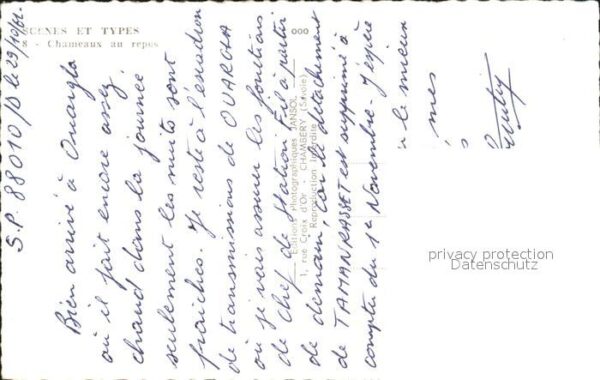 SCENES ET TYPES
8 - Chameaux au repos
000
S.P. 88010/D le 29/10/61.
Bien arrivé à Ouargla
où il fait encore assez
chaud dans la journée
seulement les nuits sont
fraiches. Je reste à l'escadron
de transmissions de OUARGLA
où je vais assurer les fonctions
de chef de station Fil à partir
de demain, car le détachement
de TAMANRASSET est supprimé à
compter du 1er Novembre - J'espère
le mieux
més
Editions Photographiques JANSOL
1, rue Croix d'Or - CHAMBERY (Savoie)
Reproduction Interdite
privacy protection
Datenschutz